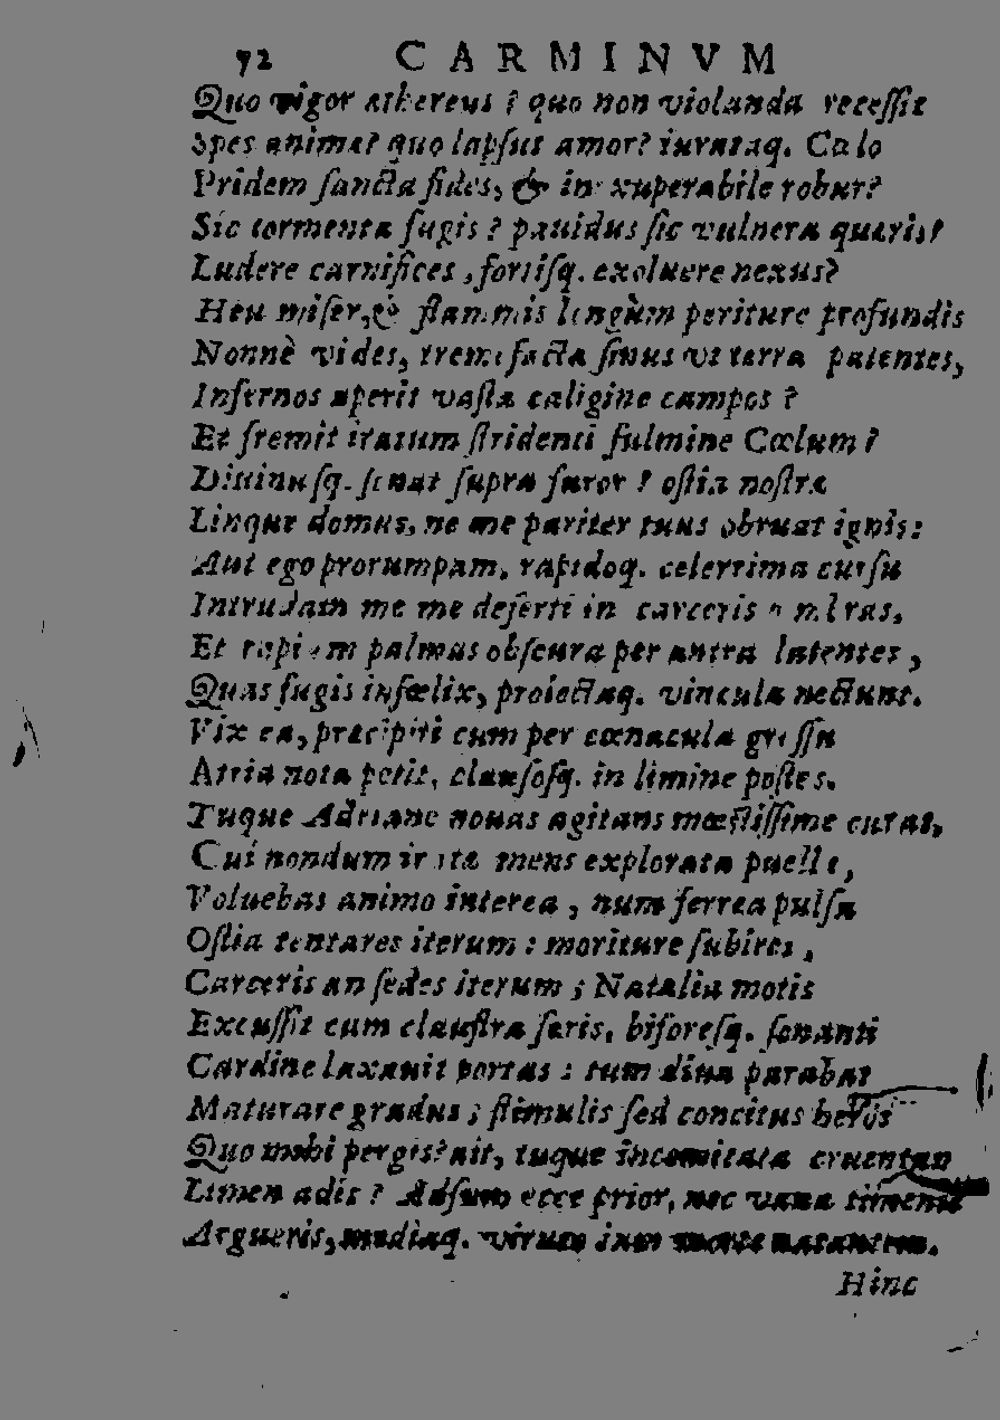 72 CARMINVM
Quo vigor æthereus? quo non violanda recessit
Spes animæ? quo lapsus amor? iurataq. Cælo
Pridem sancta fides, & inexuperabile robur?
Sic tormenta fugis? pauidus sic vulnera quæris?
Ludere carnifices, fortisq. exoluere nexus?
Heu miser, & flammis longùm periture profundis
Nonnè vides, tremefacta sinus vt terra patentes,
Infernos aperit vasta caligine campos?
Et fremit iratum stridenti fulmine Cœlum?
Diuinusq. sonat supra furor? ostia nostræ
Linque domus, ne me pariter tuus obruat ignis:
Aut ego prorumpam, rapidoq. celerrima cursu
Intrudam me me deserti in carceris vmbras,
Et rapiam palmas obscura per antra latentes,
Quas fugis infœlix, proiectaq. vincula nectunt.
Vix ea, præcipiti cum per cœnacula gressu
Atria nota petit, clausosq. in limine postes.
Tuque Adriane nouas agitans mœstissime curas,
Cui nondum iratæ mens explorata puellæ,
Voluebas animo interea, num ferrea pulsu
Ostia tentares iterum: moriture subires,
Carceris an sedes iterum; Natalia motis
Excussit cum claustra seris, biforesq. sonanti
Cardine laxauit portas: tum diua parabat
Maturare gradus; stimulis sed concitus heros
Quo mihi pergis? ait, tuque incomitata cruentum
Limen adis? Adsum ecce prior, nec vana timentis
Argueris, mediaq. virum iam morte natantem.
Hinc